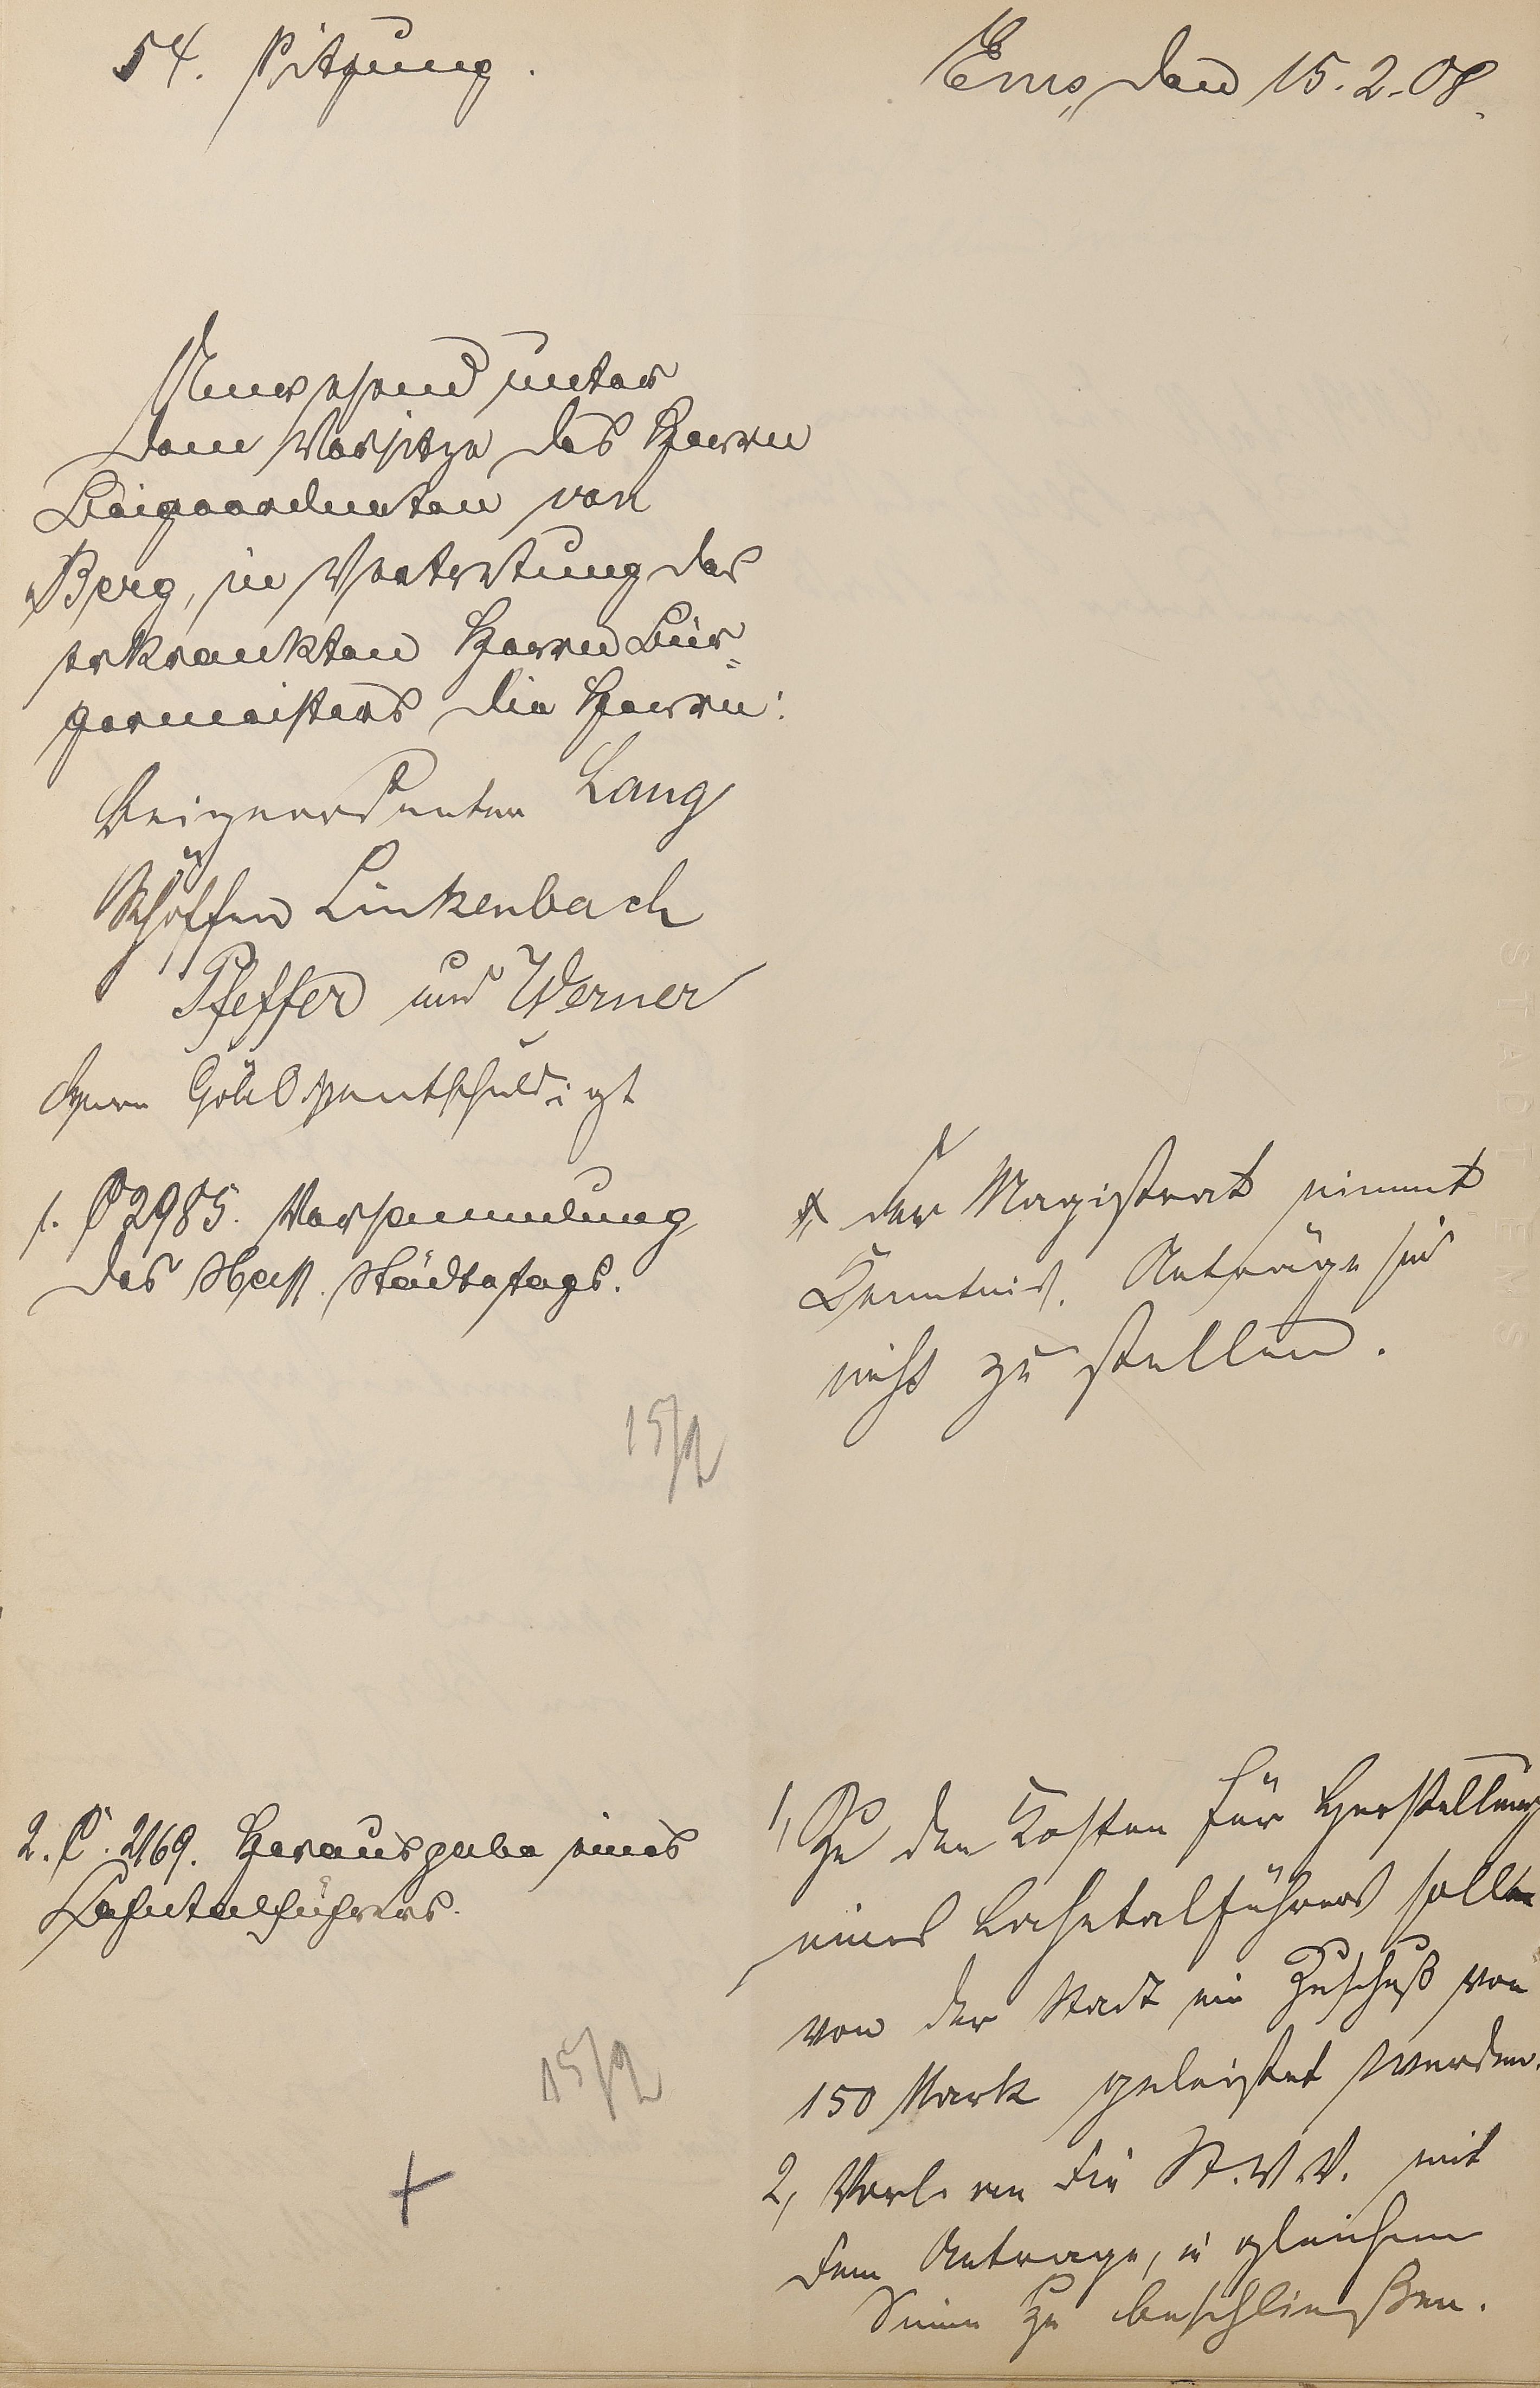 54. Sitzung.
Ems, den 15.2.08.
Anwesend unter
dem Vorsitze des Herrn
Beigeordneten von
Berg, in Vertretung des
erkrankten Herrn Bür-
germeisters die Herrn:
Beigeordneten Lang
Schöffen Linkenbach
Pfeffer und Werner
Herr entschuldigt
1. C 2985. Versammlung
des Nass. Städtetags.
Der Magistrat nimmt
Kenntnis. Anträge sind
nicht zu stellen.
15/2
2. C. 2169. Herausgabe eines
Lahntalführers.
1, Zu den Kosten für Herstellung
eines Lahntalführers sollen
von der Stadt ein Zuschuß von
150 Mark geleistet werden.
2, Vorl. an die St.V.V. mit
dem Antrage, in gleichem
Sinne zu beschließen.
15/2
+
STADT EMS